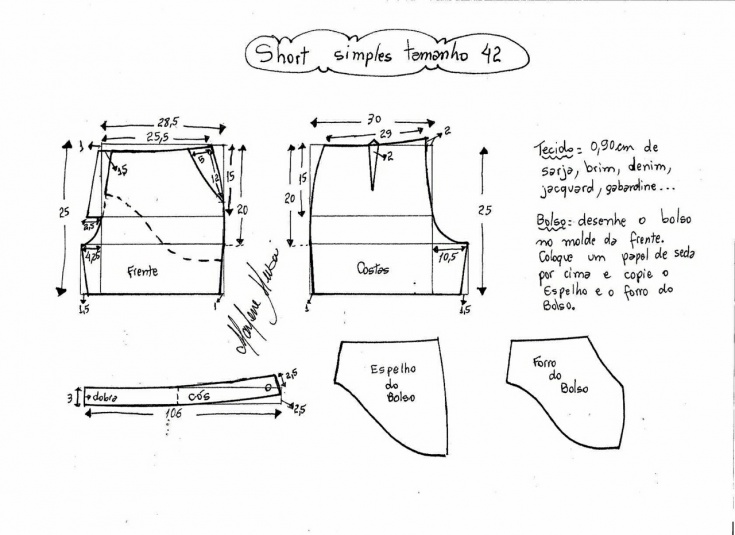 Short simples tamanho 42
28,5
25,5
1
1,5
8
12
15
20
25
2,5
4,25
Frente
1,5
1
30
29
2
2
15
20
25
10,5
Costas
1
1,5
Tecido= 0,90cm de
sarja, brim, denim,
jacquard, gabardine...
Bolso= desenhe o bolso
no molde da frente.
Coloque um papel de seda
por cima e copie o
Espelho e o forro do
Bolso.
3
dobra
cós
106
2,5
2,5
Espelho
do
Bolso
Forro
do
Bolso